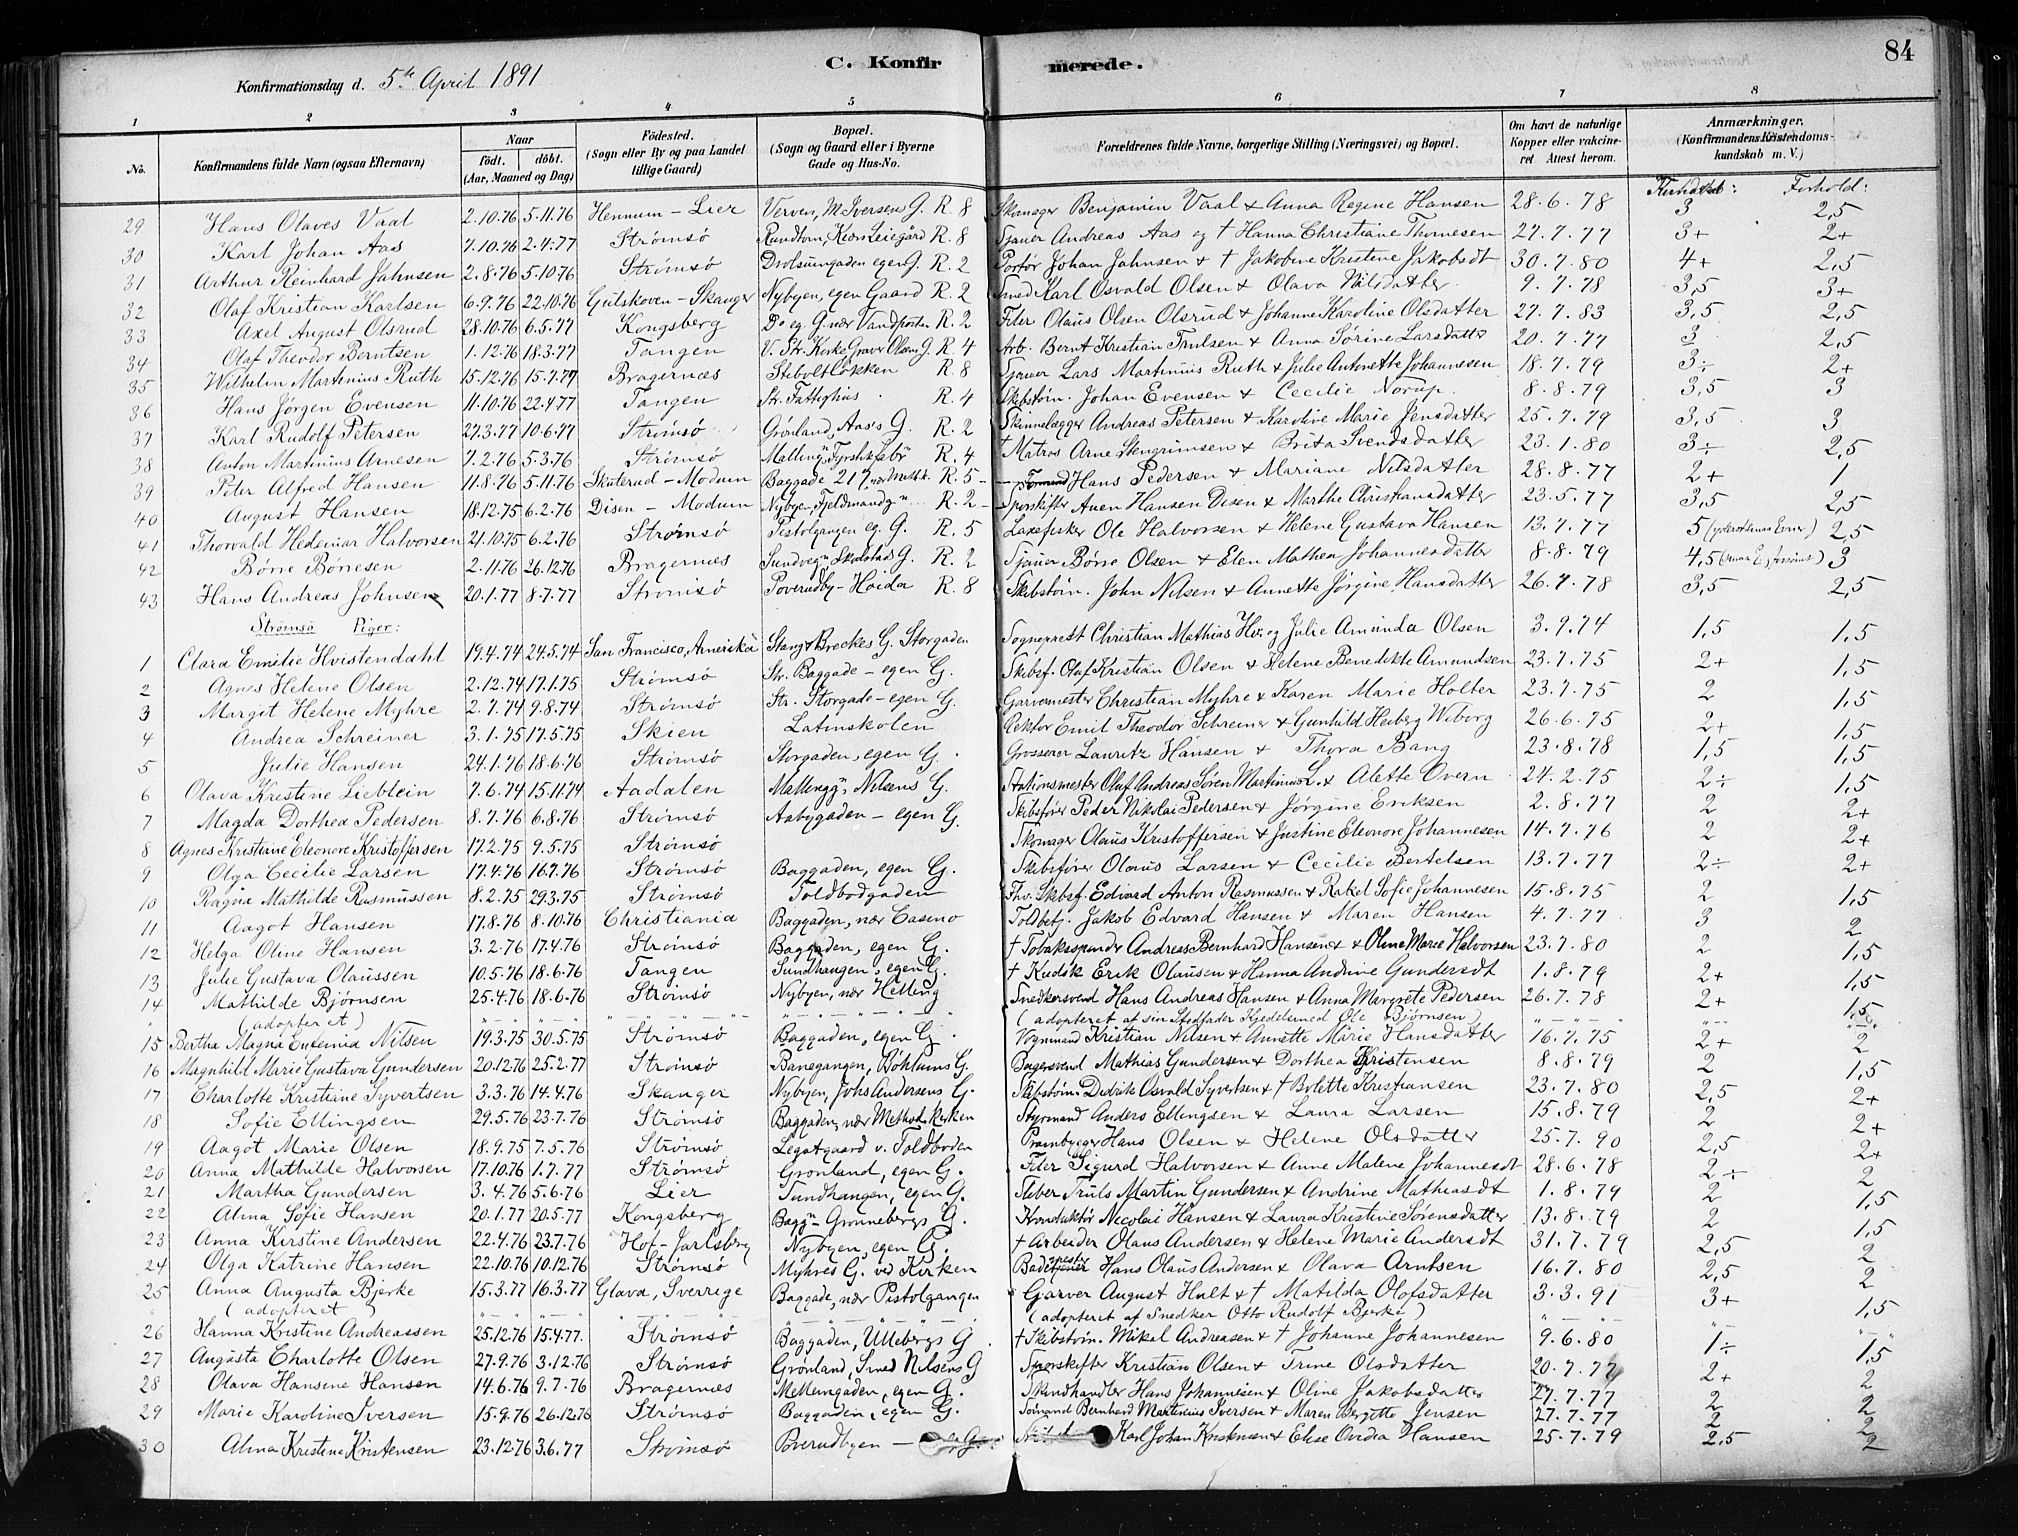 84
C. Konfirmerede.
Konfirmationsdag d. 5te April 1891
1 2 3 4 5 6 7 8
No. | Konfirmandens fulde Navn (ogsaa Efternavn) | Naar født. døbt. (Aar, Maaned og Dag) | Fødested. (Sogn eller By og paa Landet tillige Gaard) | Bopæl. (Sogn og Gaard eller i Byerne Gade og Hus-No. | Forældrenes fulde Navne, borgerlige Stilling (Næringsvei) og Bopæl. | Om havt de naturlige Kopper eller vakcineret Attest herom. | Anmærkninger. (Konfirmandens Kristendomskundskab m. V.)
Kundskab: Forhold:
29 Hans Olaves Vaal 2.10.76 5.11.76 Hennum - Lier Verven, M. Iversens G. R. 8 Skomager Benjamin Vaal & Anna Regine Hansen 28.6.78 3 2,5
30 Karl Johan Aas 7.10.76 2.4.77 Strømsø Rundtom, Leiegård R. 8 Sjauer Andreas Aas og † Hanna Christiane Thomesen 27.7.77 3+ 2+
31 Arthur Reinhard Jahnsen 2.8.76 5.10.76 Strømsø Drolsumgaden egen G. R. 2 Portør Johan Jahnsen & † Jakobine Kristine Jakobsdt 30.7.80 4+ 2,5
32 Olaf Kristian Karlsen 6.9.76 22.10.76 Gulskoven - Skanger Nybyen, egen Gaard R. 2 Smed Karl Osvald Olsen & Olava Nilsdatter 9.7.78 3,5 3+
33 Axel August Olsrud 28.10.76 6.5.77 Kongsberg Do eg. G. nær Vandposten R. 2 Filer Olaus Olsen Olsrud & Johanne Karoline Olsdatter 27.7.83 3,5 2,5
34 Olaf Theodor Berntsen 1.12.76 18.3.77 Tangen V. Str. Kirke Graver Olsens G. R. 4 Arb. Bernt Kristian Trulsen & Anna Sørine Larsdatter 20.7.77 3 2,5
35 Wilhelm Martinius Ruth 15.12.76 15.7.77 Bragernæs Stiboltløkken R. 8 Sjauer Lars Martinius Ruth & Julie Antonette Johannesen 18.7.79 3÷ 2+
36 Hans Jørgen Evensen 11.10.76 22.4.77 Tangen Str. Fattighus R. 4 Skibstøm. Johan Evensen & Cecilie Norup 8.8.79 3,5 3
37 Karl Rudolf Petersen 27.3.77 10.6.77 Strømsø Grønland, Aas's G. R. 2 Skinnelægger Andreas Petersen & Karoline Marie Jensdatter 25.7.79 3,5 3
38 Anton Martinius Arnesen 7.2.76 5.3.76 Strømsø Malling, Fyrstikfabr R. 4 † Matros Arne Stengrimsen & Brita Svendsdatter 23.1.80 3÷ 2,5
39 Peter Alfred Hansen 11.8.76 5.11.76 Skuterud - Modum Baggade 217, R. 5 Hans Pedersen & Mariane Nilsdatter 28.8.77 2+ 1
40 August Hansen 18.12.75 6.2.76 Disen - Modum Nybyen, Fjeldmandg R. 2 Sporskifter Auen Hansen Disen & Marthe Christiansdatter 23.5.77 3,5 2,5
41 Thorvald Hedemar Halvorsen 21.10.75 6.2.76 Strømsø Pistolgangen eg. G. R. 5 Laxefisker Ole Halvorsen & Helene Gustava Hansen 13.7.77 5 2,5
42 Børre Børresen 2.11.76 26.12.76 Bragernæs Sundveg, Skulstads G. R. 2 Sjauer Børre Olsen & Elen Mathea Johannesdatter 8.8.79 4,5 3
43 Hans Andreas Johnsen 20.1.77 8.7.77 Strømsø Poverudby - Hoida R. 8 Skibstøm. John Nilsen & Annette Jørgine Hansdatter 26.7.78 3,5 2,5
Strømsø Piger:
1 Clara Emilie Hvistendahl 19.4.74 24.5.74 San Francisco, Amerika Stang & Breckes G. Storgaden Sogneprest Christian Mathias Hv. og Julie Amunda Olsen 3.9.74 1,5 1,5
2 Agnes Helene Olsen 2.12.74 17.1.75 Strømsø Str. Baggade - egen G. Skibsf. Olaf Kristian Olsen & Helene Benedikte Amundsen 23.7.75 2+ 1,5
3 Margit Helene Myhre 2.7.74 9.8.74 Strømsø Str. Storgade - egen G. Garvermester Christian Myhre & Karen Marie Holter 23.7.75 2 1,5
4 Andrea Schreiner 3.1.75 17.5.75 Skien Latinskolen Rektor Emil Theodor Schreiner & Gunhild Heiberg Wiborg 26.6.75 2+ 1,5
5 Julie Hansen 24.1.76 18.6.76 Strømsø Storgaden, egen G. Grosserer Lauritz Hansen & Thora Bang 23.8.78 1,5 1,5
6 Olava Kristine Lieblein 7.6.74 15.11.74 Aadalen Mallinggn Nilsens G. Stationsmester Oluf Andreas Søren Martinius L. & Alette Overn 24.2.75 2÷ 1,5
7 Magda Dorthea Pedersen 8.7.76 6.8.76 Strømsø Aabygaden - egen G. Skibsfører Peder Nikolai Pedersen & Jørgine Eriksen 2.8.77 2 2+
8 Agnes Kristiane Eleonore Kristoffersen 17.2.75 9.5.75 Strømsø Skomager Olaus Kristoffersen & Justine Eleonore Johannesen 14.7.76 2 2+
9 Olga Cecilie Larsen 17.4.76 16.7.76 Strømsø Baggaden, egen G. Skibsfører Olaus Larsen & Cecilie Bertelsen 13.7.77 2÷ 2+
10 Ragna Mathilde Rasmussen 8.2.75 29.3.75 Strømsø Toldbodgaden Fhv. Skibsf. Edvard Anton Rasmussen & Rakel Sofie Johannesen 15.8.75 2 1,5
11 Aagot Hansen 17.8.76 8.10.76 Christiania Baggaden, nær Casino Toldbetj. Jakob Edvard Hansen & Maren Hansen 4.7.77 3 2
12 Helga Oline Hansen 3.2.76 17.4.76 Strømsø Baggaden, egen G. † Tobaksspinder Andreas Bernhard Hansen & Oline Marie Halvorsen 23.7.80 2 1,5
13 Julie Gustava Olaussen 10.5.76 18.6.76 Tangen Sundhaugen, egen G. † Kudsk Erik Olausen & Hanna Andrine Gundersdt 1.8.79 2+ 1,5
14 Mathilde Bjørnsen 25.4.76 18.6.76 Strømsø Nybyen, nær Helling Snedkersvend Hans Andreas Hansen & Anna Margrete Pedersen 26.7.78 2+ 1,5
(adopteret) (adopteret af sin Stedfader Kjedelsmed Ole Bjørnsen)
15 Bertha Magna Eufemia Nilsen 19.3.75 30.5.75 Strømsø Baggaden, egen G. Vognmand Kristian Nilsen & Annette Marie Hansdatter 16.7.75 2+ 2
16 Magnhild Marie Gustava Gundersen 20.12.76 25.2.77 Strømsø Banegangen, Bohlums G. Bagersvend Mathias Gundersen & Dorthea Kristensen 8.8.79 2 1,5
17 Charlotte Kristine Syvertsen 3.3.76 14.4.76 Skanger Nybyen, Johs Andersens G. Skibstøm. Didrik Osvald Syvertsen & † Bolette Kristiansen 23.7.80 2,5 2+
18 Sofie Ellingsen 29.5.76 23.7.76 Strømsø Baggaden, nær Methodistkirken Styrmand Anders Ellingsen & Laura Larsen 15.8.79 2 2+
19 Aagot Marie Olsen 18.9.75 7.5.76 Strømsø Legatgaard v. Toldboden Prambygger Hans Olsen & Helene Olsdatter 25.7.90 2,5 2+
20 Anna Mathilde Halvorsen 17.10.76 1.7.77 Strømsø Grønland, egen G. Filer Sigurd Halvorsen & Anne Malene Johannesdt 28.6.78 2÷ 2
21 Martha Gundersen 3.4.76 5.6.76 Lier Tundhaugen, egen G. Støber Truls Martin Gundersen & Andrine Mathiasdt 1.8.79 2 1,5
22 Alma Sofie Hansen 20.1.77 20.5.77 Kongsberg Baggn Grønnebergs G. Konduktør Nicolai Hansen & Laura Kristine Sørensdatter 13.8.79 2 1,5
23 Anna Kirstine Andersen 22.4.76 23.7.76 Hof - Jarlsberg Nybyen, egen G. † Arbeider Olaus Andersen & Helene Marie Andersdt 31.7.79 2,5 2
24 Olga Katrine Hansen 22.10.76 10.12.76 Strømsø Myhres G. ved Kirken Hans Olaus Andersen & Olava Arntsen 16.7.80 2,5 2
25 Anna Augusta Bjerke 15.3.77 16.3.77 Glava, Sverrige Baggade, nær Pistolgangen Garver August Hult & † Matilda Olofsdatter 3.3.91 3+ 1,5
(adopteret) (adopteret af Snedker Otto Rudolf Bjerke)
26 Hanna Kristine Andreassen 25.12.76 15.4.77 Strømsø Baggaden, Ullebergs G. † Skibstøm. Mikal Andreasen & † Johanne Johannesen 9.6.80 1÷ 1,5
27 Augusta Charlotte Olsen 27.9.76 3.12.76 Strømsø Grønland, Smed Nilsens G Sporskifter Kristian Olsen & Trine Olsdatter 20.7.77 2+ 2
28 Olava Hansine Hansen 14.6.76 9.7.76 Bragernæs Mellemgaden, egen G. Skindhandler Hans Johannesen & Oline Jakobsdatter 27.7.77 2 2
29 Marie Karoline Iversen 15.9.76 26.12.76 Strømsø Baggaden, egen G. Formand Bernhard Martinius Iversen & Maren Bergitte Jensen 27.7.77 2 2
30 Alma Kristine Kristensen 23.12.76 3.6.77 Strømsø Poverudbyen - G. Karl Johan Kristensen & Elise Ovidia Hansen 25.7.79 2,5 2